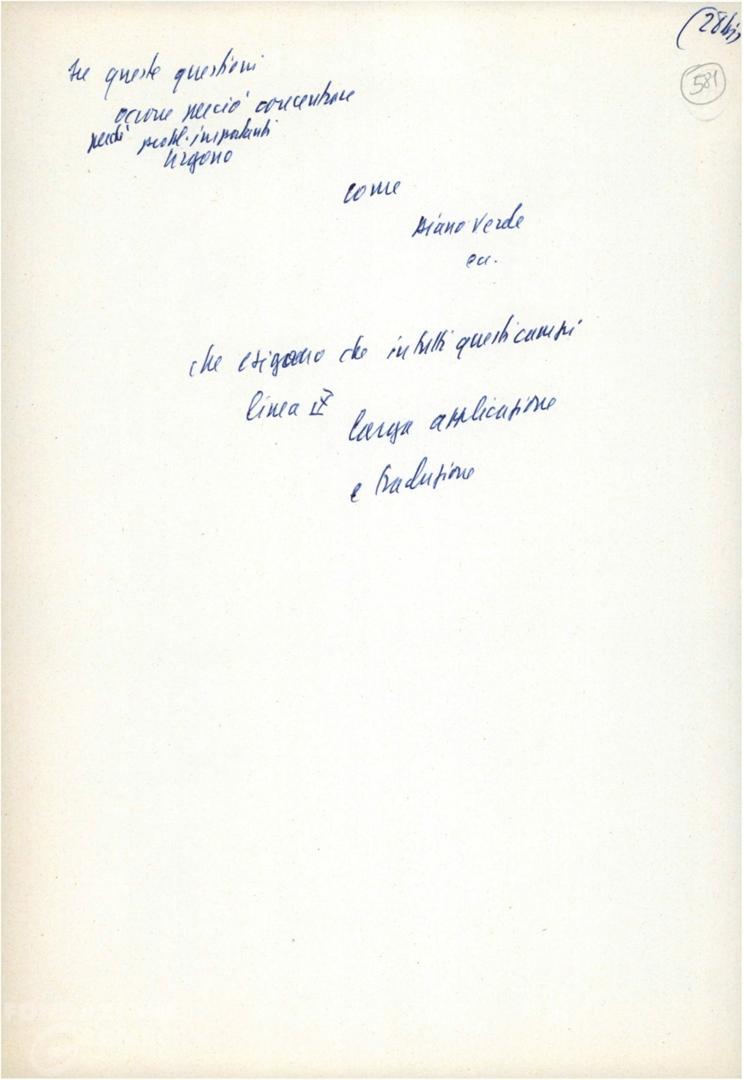 (28bis
581
su queste questioni
occorre perciò concentrare
perché probl. importanti
urgono
come
piano verde
ecc.
che esigono che in tutti questi campi
linea IX
larga applicazione
e traduzione